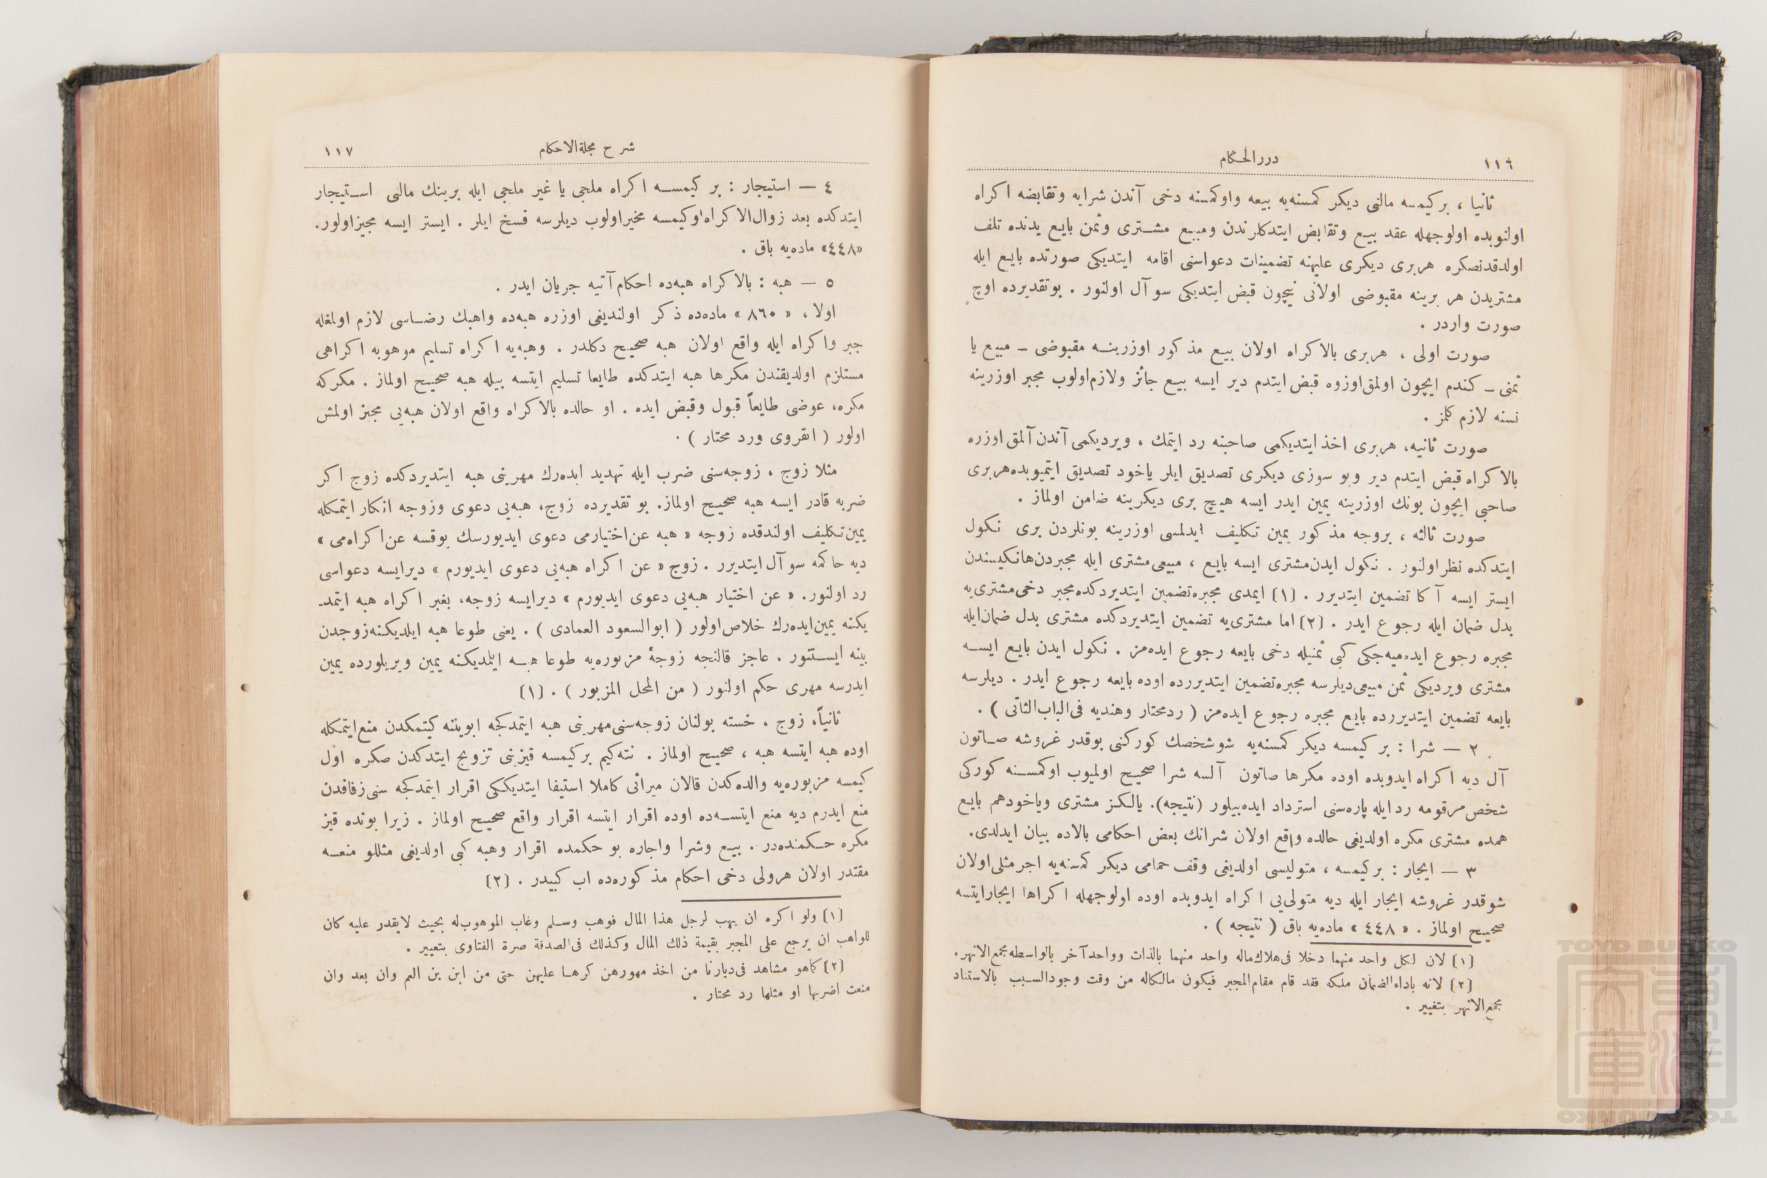 ١١٦
دررالحكام
ثانيا ، بركيمسه مالنى ديكر كمسنه‌يه بيعه واوكمسنه دخى آندن شرايه وتقابضه اكراه
اولنوبده اولوجهله عقد بيع وتقابض ايتدكلرندن ومبيع مشترى وثمن بايع يدنده تلف
اولدقدنصكره هربرى ديكرى عليهنه تضمينات دعواسنى اقامه ايتديكى صورتده بايع ايله
مشتريدن هر برينه مقبوضى اولانى نيچون قبض ايتديكى سوآل اولنور . بوتقديرده اوچ
صورت واردر .
صورت اولى ، هربرى بالاكراه اولان بيع مذكور اوزرينه مقبوضى ــ مبيع يا
ثمنى ــ كندم ايچون اولمق‌اوزوه قبض ايتدم دير ايسه بيع جائز ولازم‌اولوب مجبر اوزرينه
نسنه لازم كلمز .
صورت ثانيه، هربرى اخذ ايتديكمى صاحبنه رد ايتمك ، ويرديكمى آندن آلمق اوزره
بالاكراه قبض ايتدم دير وبو سوزى ديكرى تصديق ايلر ياخود تصديق ايتميوبده‌هربرى
صاحبى ايچون بونك اوزرينه يمين ايدر ايسه هيچ برى ديكرينه ضامن اولماز .
صورت ثالثه ، بروجه مذكور يمين تكليف ايدلمسى اوزرينه بونلردن برى نكول
ايتدكده نظر اولنور . نكول ايدن‌مشترى ايسه بايع ، مبيعى مشترى ايله مجبردن‌هانكيسندن
ايستر ايسه آكا تضمين ايتديرر . [١] ايمدى مجبره‌تضمين ايتديردكده‌مجبر دخى‌مشترى‌يه
بدل ضمان ايله رجوع ايدر . [٢] اما مشترى‌يه تضمين ايتديردكده مشترى بدل ضمان‌ايله
مجبره رجوع ايده‌ميه‌جكى كبى ثمنيله دخى بايعه رجوع ايده‌مز . نكول ايدن بايع ايسه
مشترى ويرديكى ثمن مبيعى‌ديلرسه مجبره‌تضمين ايتديررده اوده بايعه رجوع ايدر . ديلرسه
بايعه تضمين ايتديررده بايع مجبره رجوع ايده‌مز ( ردمحتار وهنديه فى‌الباب‌الثانى ) .
٢ — شرا : بر كيمسه ديكر كمسنه‌يه شوشخصك كوركنى بوقدر غروشه صاتون
آل ديه اكراه ايدوبده اوده مكرها صاتون آلسه شرا صحيح اولميوب اوكمسنه كوركى
شخص‌مرقومه رد ايله پاره‌سنى استرداد ايده‌بيلور (نتيجه). يالكز مشترى وياخودهم بايع
همده مشترى مكره اولديغى حالده واقع اولان شرانك بعض احكامى بالاده بيان ايدلدى.
٣ — ايجار : بركيمسه ، متوليسى اولديغى وقف حمامى ديكر كمسنه‌يه اجرمثلى‌اولان
شوقدر غروشه ايجار ايله ديه متولى‌يى اكراه ايدوبده اوده اولوجهله اكراها ايجارايتسه
صحيح اولماز . « ٤٤٨ » ماده‌يه باق ( نتيجه ) .
[١] لان لكل واحد منهما دخلا فى‌هلاك‌ماله واحد منهما بالذات وواحدآخر بالواسطه‌مجمع‌الانهر.
[٢] لانه باداءالضمان ملكه فقد قام مقام‌المجبر فيكون مالكاله من وقت وجودالسبب بالاستناد
مجمع‌الانهر بتغيير .
شرح مجلةالاحكام
١١٧
٤ — استيجار : بر كيمسه اكراه ملجى يا غير ملجى ايله برينك مالنى استيجار
ايتدكده بعد زوال‌الاكراه‌اوكيمسه مخيراولوب ديلرسه فسخ ايلر . ايستر ايسه مجيزاولور.
«٤٤٨» ماده‌يه باق .
٥ — هبه : بالاكراه هبه‌ده احكام آتيه جريان ايدر .
اولا ، « ٨٦٠ » ماده‌ده ذكر اولنديغى اوزره هبه‌ده واهبك رضاسى لازم اولمغله
جبر واكراه ايله واقع اولان هبه صحيح دكلدر . وهبه‌يه اكراه تسليم موهوبه اكراهى
مستلزم اولديغندن مكرها هبه ايتدكده طايعا تسليم ايتسه بيله هبه صحيح اولماز . مكركه
مكره، عوضى طايعاً قبول وقبض ايده . او حالده بالاكراه واقع اولان هبه‌يى مجيز اولمش
اولور ( انقروى ورد محتار ) .
مثلا زوج ، زوجه‌سنى ضرب ايله تهديد ايده‌رك مهرينى هبه ايتديردكده زوج اكر
ضربه قادر ايسه هبه صحيح اولماز. بو تقديرده زوج، هبه‌يى دعوى وزوجه انكار ايتمكله
يمين‌تكليف اولندقده زوجه « هبه عن‌اختيارمى دعوى ايديورسك يوقسه عن‌اكراه‌مى »
ديه حاكمه سوآل ايتديرر . زوج « عن اكراه هبه‌يى دعوى ايديورم » ديرايسه دعواسى
رد اولنور. « عن اختيار هبه‌يى دعوى ايديورم » ديرايسه زوجه، بغير اكراه هبه ايتمد-
يكنه يمين‌ايده‌رك خلاص‌اولور ( ابوالسعود العمادى ) . يعنى طوعا هبه ايلديكنه‌زوجدن
بينه ايستنور . عاجز قالنجه زوجۀ مزبوره‌يه طوعا هبه ايلمديكنه يمين ويريلورده يمين
ايدرسه مهرى حكم اولنور ( من المحل المزبور ) . [١]
ثانياً، زوج ، خسته بولنان زوجه‌سنى‌مهرينى هبه ايتمدكجه ابوينه كيتمكدن منع‌ايتمكله
اوده هبه ايتسه هبه ، صحيح اولماز . نته‌كيم بركيمسه قيزينى تزويج ايتدكدن صكره اول
كيمسه مزبوره‌يه والده‌كدن قالان ميراثى كاملا استيفا ايتديككى اقرار ايتمدكجه سنى‌زفافدن
منع ايدرم ديه منع ايتسه‌ده اوده اقرار ايتسه اقرار واقع صحيح اولماز . زيرا بونده قيز
مكره حكمنده‌در . بيع وشرا واجاره بو حكمده اقرار وهبه كبى اولديغى مثللو منعه
مقتدر اولان هرولى دخى احكام مذكوره‌ده اب كبيدر . [٢]
[١] ولو اكره ان يهب لرجل هذا المال فوهب وسلم وغاب الموهوب‌له بحيث لايقدر عليه كان
للواهب ان يرجع على المجبر بقيمة ذلك المال وكذلك فى‌الصدقة صرة الفتاوى بتغيير .
[٢] كماهو مشاهد فى‌ديارنا من اخذ مهورهن كرها عليهن حتى من ابن بن العم وان بعد وان
منعت اضربها او مثلها رد محتار .
TOYO BUNKO